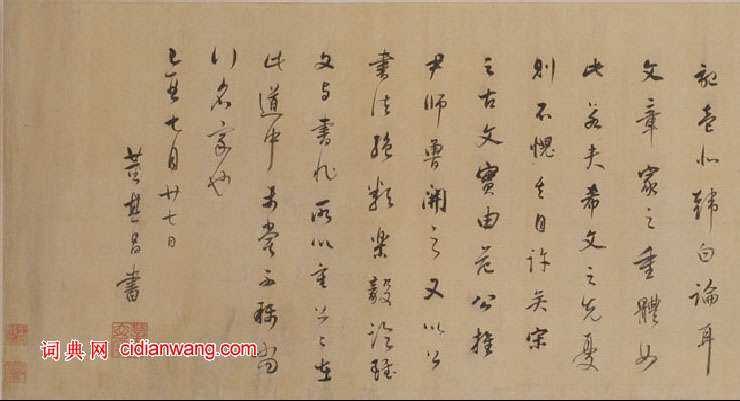 記韓白論耳
文章家之重體如
此若夫希文之先憂
則不愧其自許矣宋
之古文實由范公推
尹師魯開之又以公
書法絕類樂毅論雖
文与書非所以重公公在
此道中未嘗不稱當
行名家也
七月廿七日
董其昌書
词典网 cidianwang.com